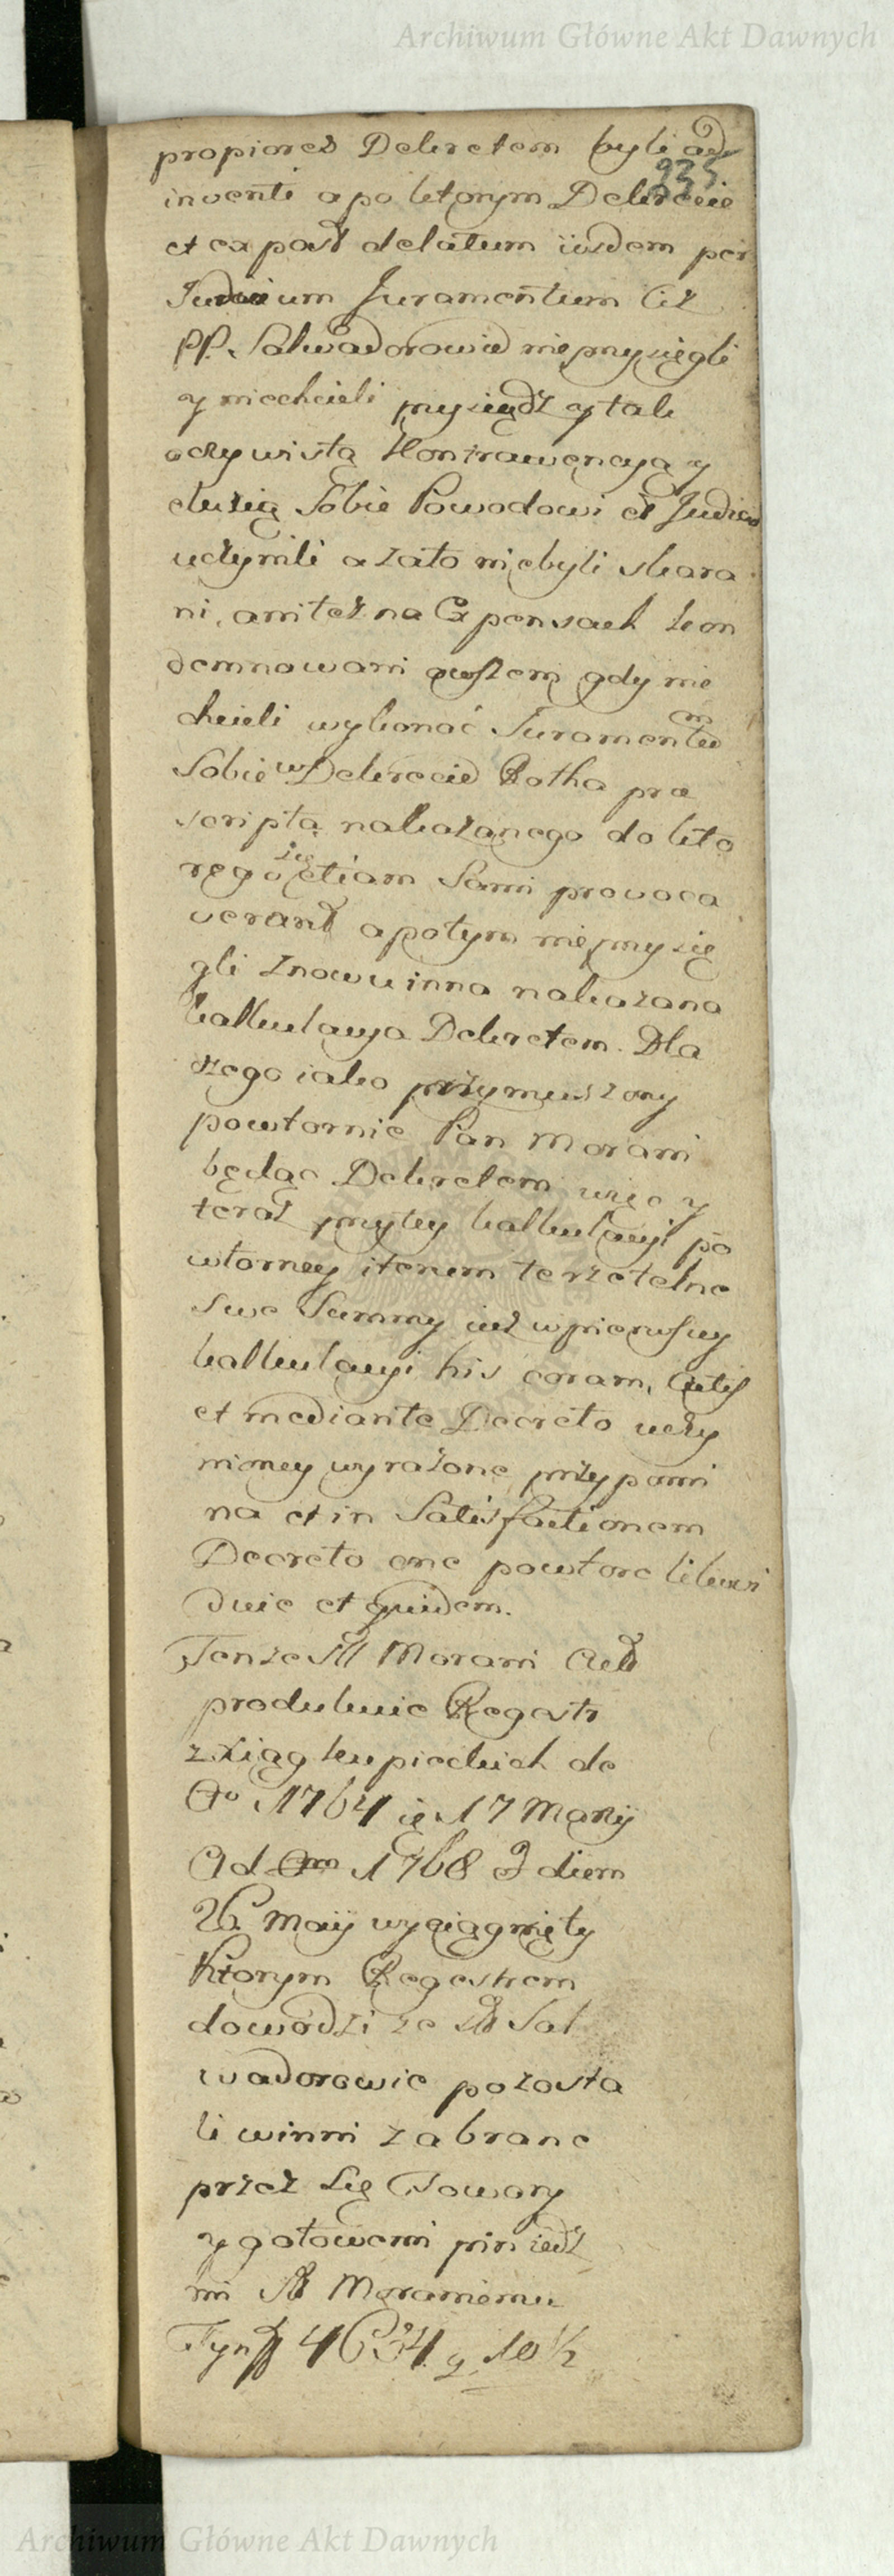 Archiwum Główne Akt Dawnych
propiores Dekretem byli ad
935
inventi a po ktorym Dekrecie
et ex post delatum iisdem per
Judicium Juramentum Cit
PP. Salwadorowie nieprzysięgli
y niechcieli przysiądz y tak
oczywistą Kontrawencyą y
eluzią Sobie Powodowi et Judicio
uczynili a zato niebyli skara
ni, ani też na Expensach kon
demnowani owszem gdy nie
chcieli wykonać Juramentu
Sobie w Dekrecie Rotha prae
scripta nakazanego do kto
rego się etiam Sami provoca
verant a potym nieprzysię
gli znowu inna nakazana
kalkulacya Dekretem. Dla
czego iako przymuszony
powtornie Pan Morani
będąc Dekretem więc y
teraz przytey kalkulacyi po
wtorney iterum te rzetelne
swe Summy iuż wpierwszey
kalkulacyi his coram Actis
et mediante Decreto uczy
nioney wyrażone przypomi
na et in Satisfactionem
Decreto one powtore likwi
duie et quidem.
Tenze Morani Act
produkuie Regestr
z Xiąg kupieckich de
Ao 1764 17 Marty
Ad Am 1768 diem
26 Maij wyciągnięty
Ktorym Regestrem
dowodzi ze Sal
wadorowie pozosta
li winni zabrane
przez Się Towary
y gotowemi pieniędz
mi Moraniemu
Tynff 4634 g 10 1/2
Archiwum Główne Akt Dawnych